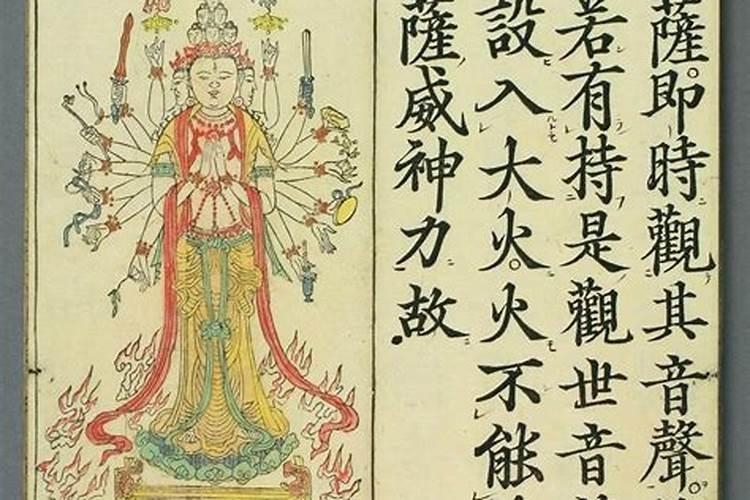 薩。即時觀其音聲。
若有持是觀世音
設入大火。火不能
薩威神力故.